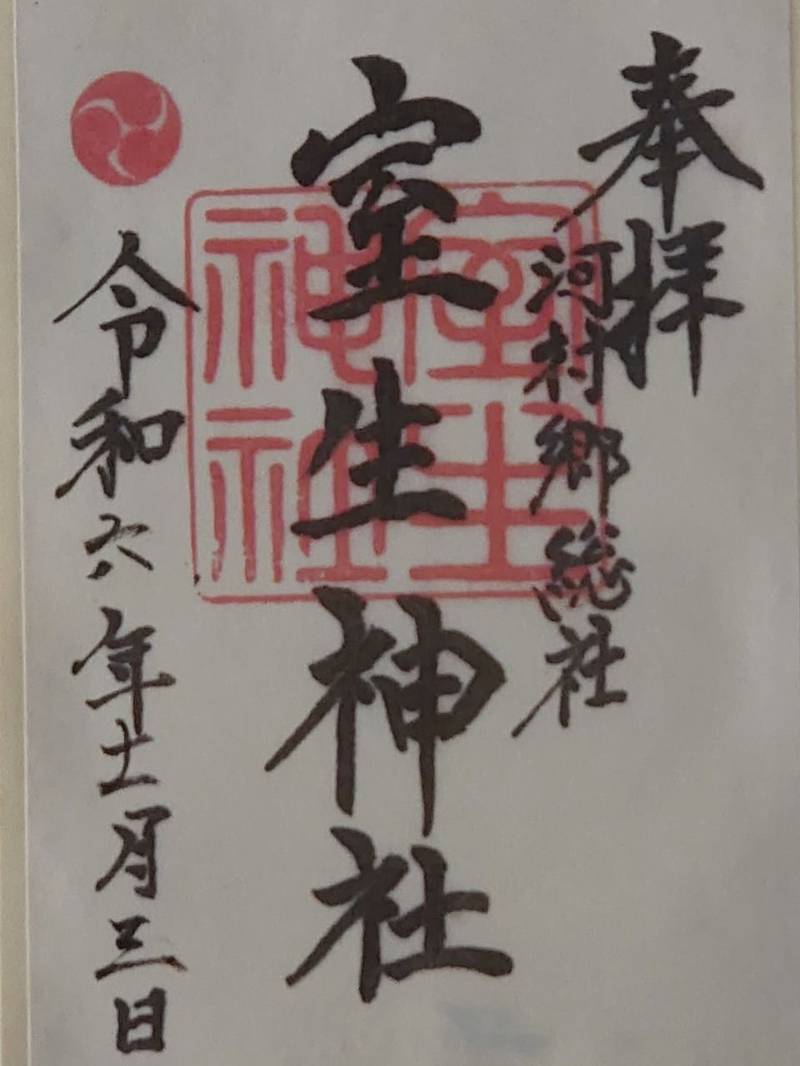 奉拝
河村郷総社
室生神社
室生
神社
令和六年十一月三日